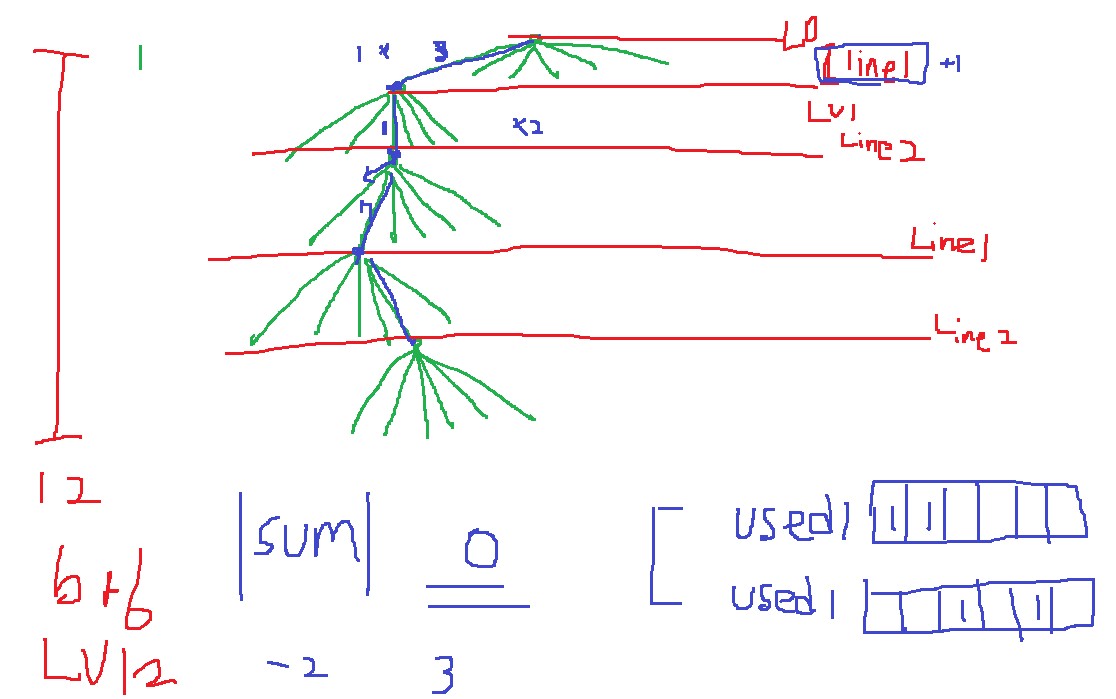 L0
1 1 x 3 line1 +1
LV1
1 x2 Line 2
Line1
Line 2
12
6+6
LV12
|sum| 0
-2 3
used1 1 1
used1 1 1